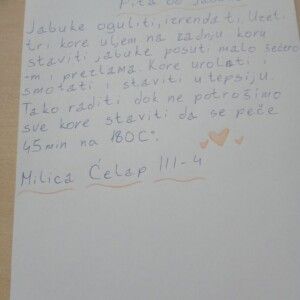 Pita od jabuka
Jabuke oguliti, izrendati. Uzeti
tri kore uljem na zadnju koru
staviti jabuke posuti malo šećero
-m i prezlama. Kore urolati i
smotati i staviti u tepsiju.
Tako raditi dok ne potrošimo
sve kore staviti da se peče
45min na 180C°.
Milica Ćelap III-4